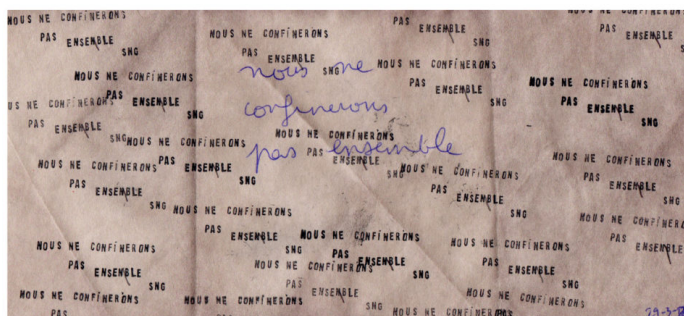 NOUS NE CONFINERONS
PAS ENSEMBLE
SNG
NOUS NE CONFINERONS
PAS ENSEMBLE
SNG
NOUS NE CONFINERONS
PAS ENSEMBLE
SNG
NOUS NE CONFINERONS
PAS ENSEMBLE
SNG
nous ne
confinerons
pas ensemble
NOUS NE CONFINERONS
PAS ENSEMBLE
SNG
NOUS NE CONFINERONS
PAS ENSEMBLE
SNG
NOUS NE CONFINERONS
PAS ENSEMBLE
SNG
NOUS NE CONFINERONS
PAS ENSEMBLE
SNG
NOUS NE CONFINERONS
PAS ENSEMBLE
SNG
NOUS NE CONFINERONS
PAS ENSEMBLE
SNG
NOUS NE CONFINERONS
PAS ENSEMBLE
SNG
NOUS NE CONFINERONS
PAS ENSEMBLE
SNG
NOUS NE CONFINERONS
PAS ENSEMBLE
SNG
NOUS NE CONFINERONS
PAS ENSEMBLE
NOUS NE CONFINERONS
PAS ENSEMBLE
SNG
NOUS NE CONFINERONS
PAS ENSEMBLE
SNG
NOUS NE CONFINERONS
PAS ENSEMBLE
SNG
NOUS NE CONFINERONS
PAS ENSEMBLE
SNG
NOUS NE CONFINERONS
PAS
NOUS NE CONFINERONS
PAS ENSEMBLE
NOUS NE CONFINERONS
PAS
NOUS NE CONFINERONS